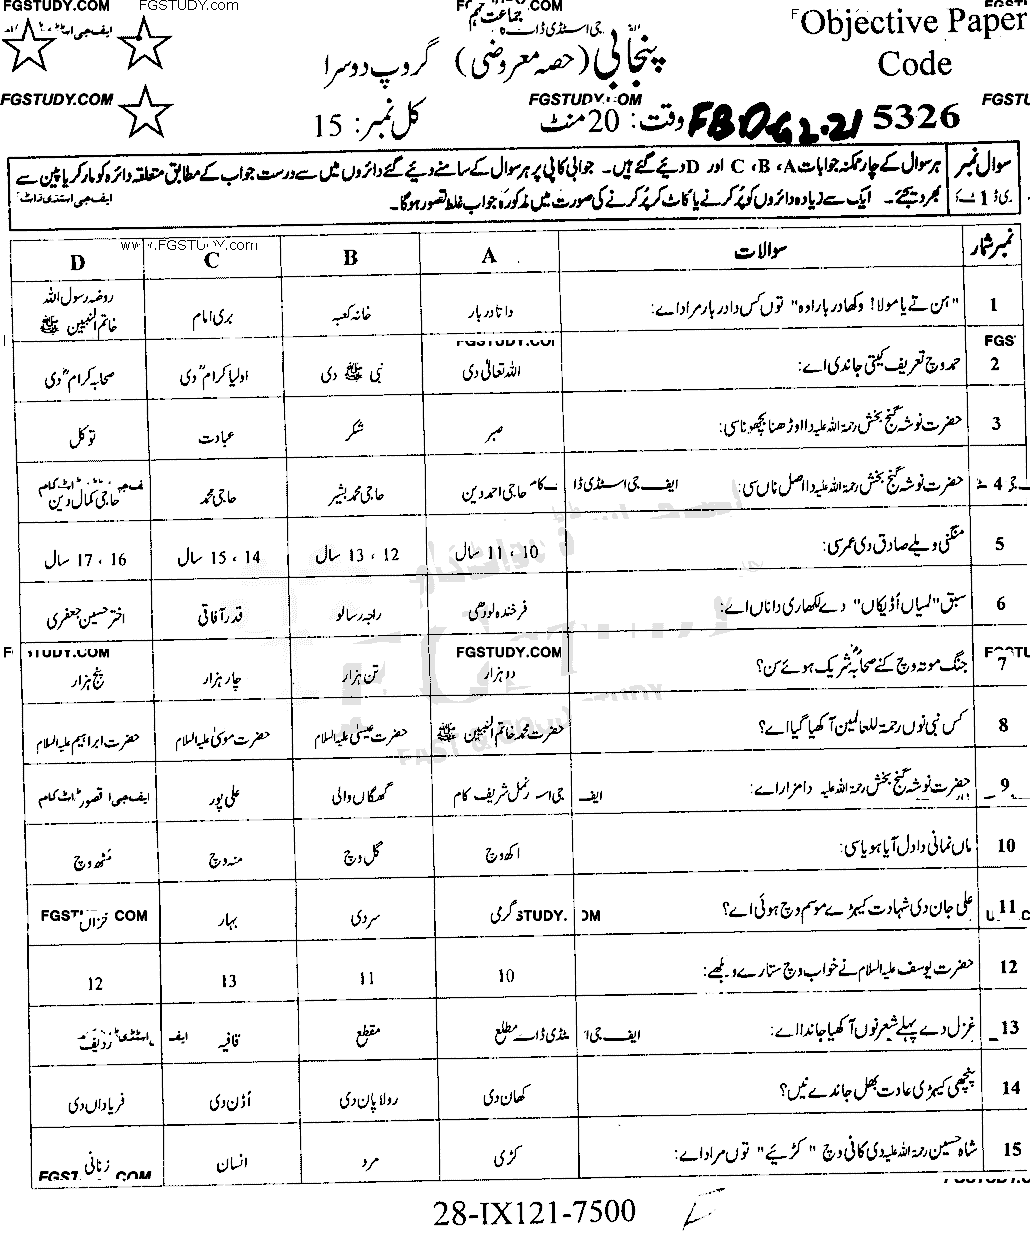 FGSTUDY.COM
جماعت نہم
Objective Paper Code
پنجابی (حصہ معروضی) گروپ دوسرا
FGSTUDY.COM
5326
وقت: 20 منٹ
کل نمبر: 15
سوال نمبر 1
ہر سوال کے چار ممکنہ جوابات A، B، C اور D دیئے گئے ہیں۔ جوابی کاپی پر ہر سوال کے سامنے دیئے گئے دائروں میں سے درست جواب کے مطابق متعلقہ دائرہ کو مارکر یا پین سے
بھر دیجئے۔ ایک سے زیادہ دائروں کو پُر کرنے یا کاٹ کر پُر کرنے کی صورت میں مذکورہ جواب غلط تصور ہوگا۔
www.FGSTUDY.com
نمبر شمار سوالات A B C D
1 "ہن تے یا مولا! وکھا دربار اوہ" توں کس دا دربار مراد اے: داتا دربار خانہ کعبہ بری امام روضہ رسول اللہ خاتم النبیین ﷺ
2 حمد وچ تعریف کیتی جاندی اے: اللہ تعالیٰ دی نبی ﷺ دی اولیا کرامؒ دی صحابہ کرامؓ دی
3 حضرت نوشہ گنج بخش رحمۃ اللہ علیہ دا اوڑھنا بچھونا سی: صبر شکر عبادت توکل
4 حضرت نوشہ گنج بخش رحمۃ اللہ علیہ دا اصل ناں سی: حاجی احمد دین حاجی محمد بشیر حاجی محمد حاجی کمال دین
5 منگنی ویلے صادق دی عمر سی: 10 ، 11 سال 12 ، 13 سال 14 ، 15 سال 16 ، 17 سال
6 سبق "لمیاں اُڈیکاں" دے لکھاری دا ناں اے: فرخندہ لودھی راجہ رسالو قدر آفاقی اختر حسین جعفری
FGSTUDY.COM
7 جنگ موتہ وچ کنے صحابہؓ شریک ہوئے سن؟ دو ہزار تن ہزار چار ہزار پنج ہزار
8 کس نبی نوں رحمۃ للعالمین آکھیا گیا اے؟ حضرت محمد خاتم النبیین ﷺ حضرت عیسیٰ علیہ السلام حضرت موسیٰ علیہ السلام حضرت ابراہیم علیہ السلام
9 حضرت نوشہ گنج بخش رحمۃ اللہ علیہ دا مزار اے: رنمل شریف گھگاں والی علی پور قصور
10 ماں نمانی دا دل آیا ہویا سی: اکھ وچ گل وچ منہ وچ مٹھ وچ
11 علی جان دی شہادت کیہڑے موسم وچ ہوئی اے؟ گرمی سردی بہار خزاں
12 حضرت یوسف علیہ السلام نے خواب وچ ستارے ویکھے: 10 11 13 12
13 غزل دے پہلے شعر نوں آکھیا جاندا اے: مطلع مقطع قافیہ ردیف
14 پنچھی کیہڑی عادت بھل جاندے نیں؟ کھان دی رولا پان دی اُڈن دی فریاداں دی
15 شاہ حسین رحمۃ اللہ علیہ دی کافی وچ "کڑیے" توں مراد اے: کڑی مرد انسان زنانی
28-IX121-7500